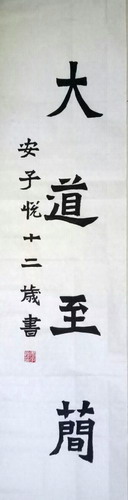 大道至簡
安子悦十二歲書